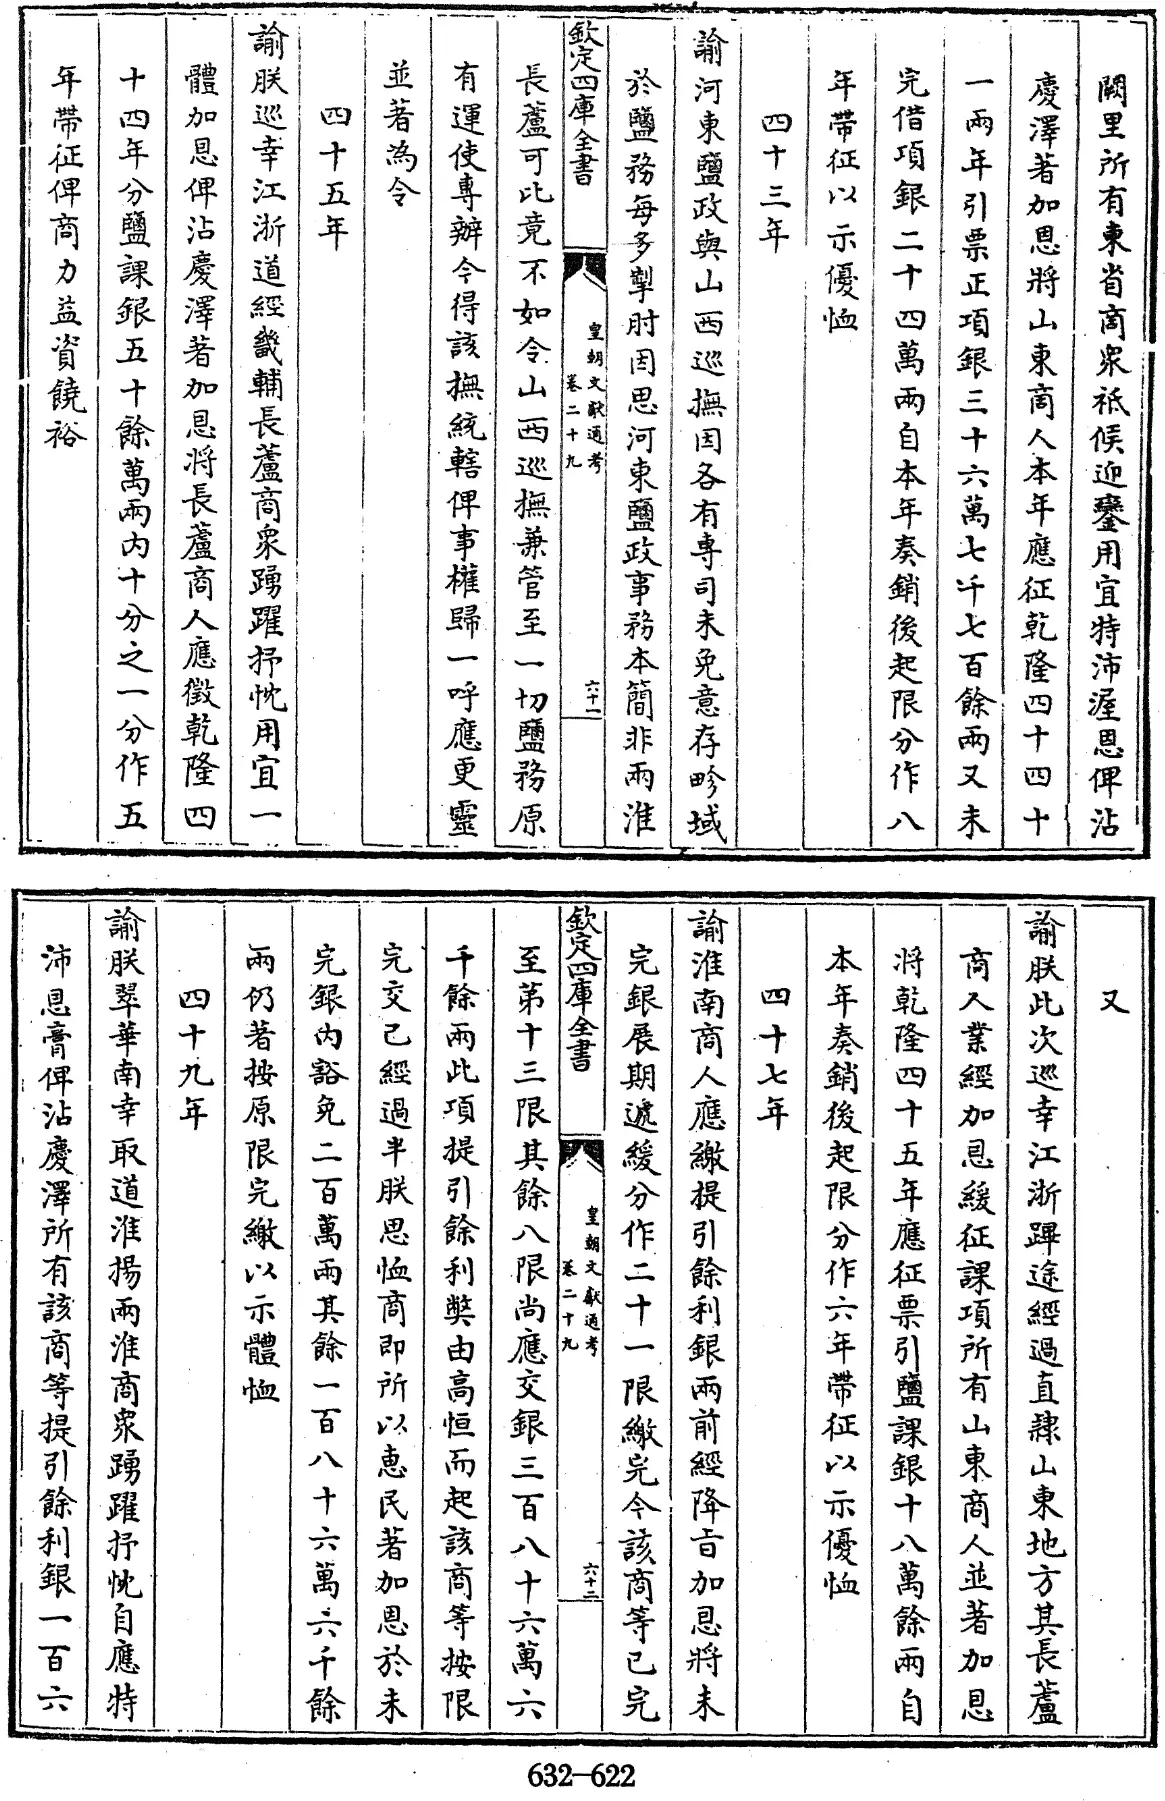 闕里所有東省商衆祗候迎鑾用宜特沛渥恩俾沾
慶澤著加恩將山東商人本年應征乾隆四十四十
一兩年引票正項銀三十六萬七千七百餘兩又未
完借項銀二十四萬兩自本年奏銷後起限分作八
年帶征以示優恤
四十三年
諭河東鹽政與山西巡撫因各有專司未免意存畛域
於鹽務每多掣肘因思河東鹽政事務本簡非兩淮
欽定四庫全書
皇朝文獻通考
卷二十九
六十一
長蘆可比竟不如令山西巡撫兼管至一切鹽務原
有運使專辦今得該撫統轄俾事權歸一呼應更靈
並著為令
四十五年
諭朕巡幸江浙道經畿輔長蘆商衆踴躍抒忱用宜一
體加恩俾沾慶澤著加恩將長蘆商人應徵乾隆四
十四年分鹽課銀五十餘萬兩内十分之一分作五
年帶征俾商力益資饒裕
又
諭朕此次巡幸江浙蹕途經過直隸山東地方其長蘆
商人業經加恩緩征課項所有山東商人並著加恩
將乾隆四十五年應征票引鹽課銀十八萬餘兩自
本年奏銷後起限分作六年帶征以示優恤
四十七年
諭淮南商人應繳提引餘利銀兩前經降㫖加恩將未
完銀展期遞緩分作二十一限繳完今該商等已完
欽定四庫全書
皇朝文獻通考
卷二十九
六十二
至第十三限其餘八限尚應交銀三百八十六萬六
千餘兩此項提引餘利獘由高恒而起該商等按限
完交已經過半朕思恤商即所以惠民著加恩於未
完銀内豁免二百萬兩其餘一百八十六萬六千餘
兩仍著按原限完繳以示體恤
四十九年
諭朕翠華南幸取道淮揚兩淮商衆踴躍抒忱自應特
沛恩膏俾沾慶澤所有該商等提引餘利銀一百六
632—622